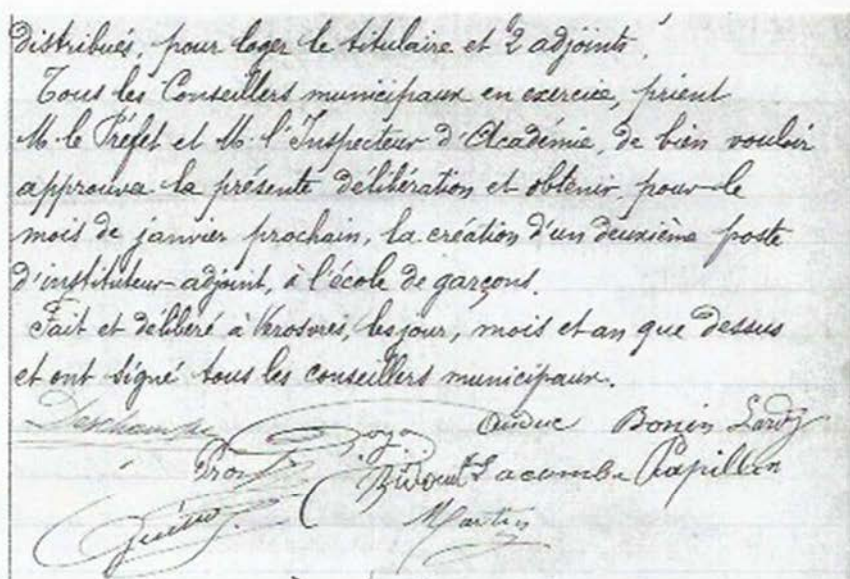 distribués, pour loger le titulaire et 2 adjoints.
Tous les Conseillers municipaux en exercice, prient
M. le Préfet et M. l'Inspecteur d'Académie, de bien vouloir
approuver la présente délibération et obtenir, pour le
mois de janvier prochain, la création d'un deuxième poste
d'instituteur-adjoint, à l'école de garçons.
Fait et délibéré à Verosvres, les jour, mois et an que dessus
et ont signé tous les conseillers municipaux.
Deschamps Auduc Bonin Lardy
Lacombe Papillon
Martin